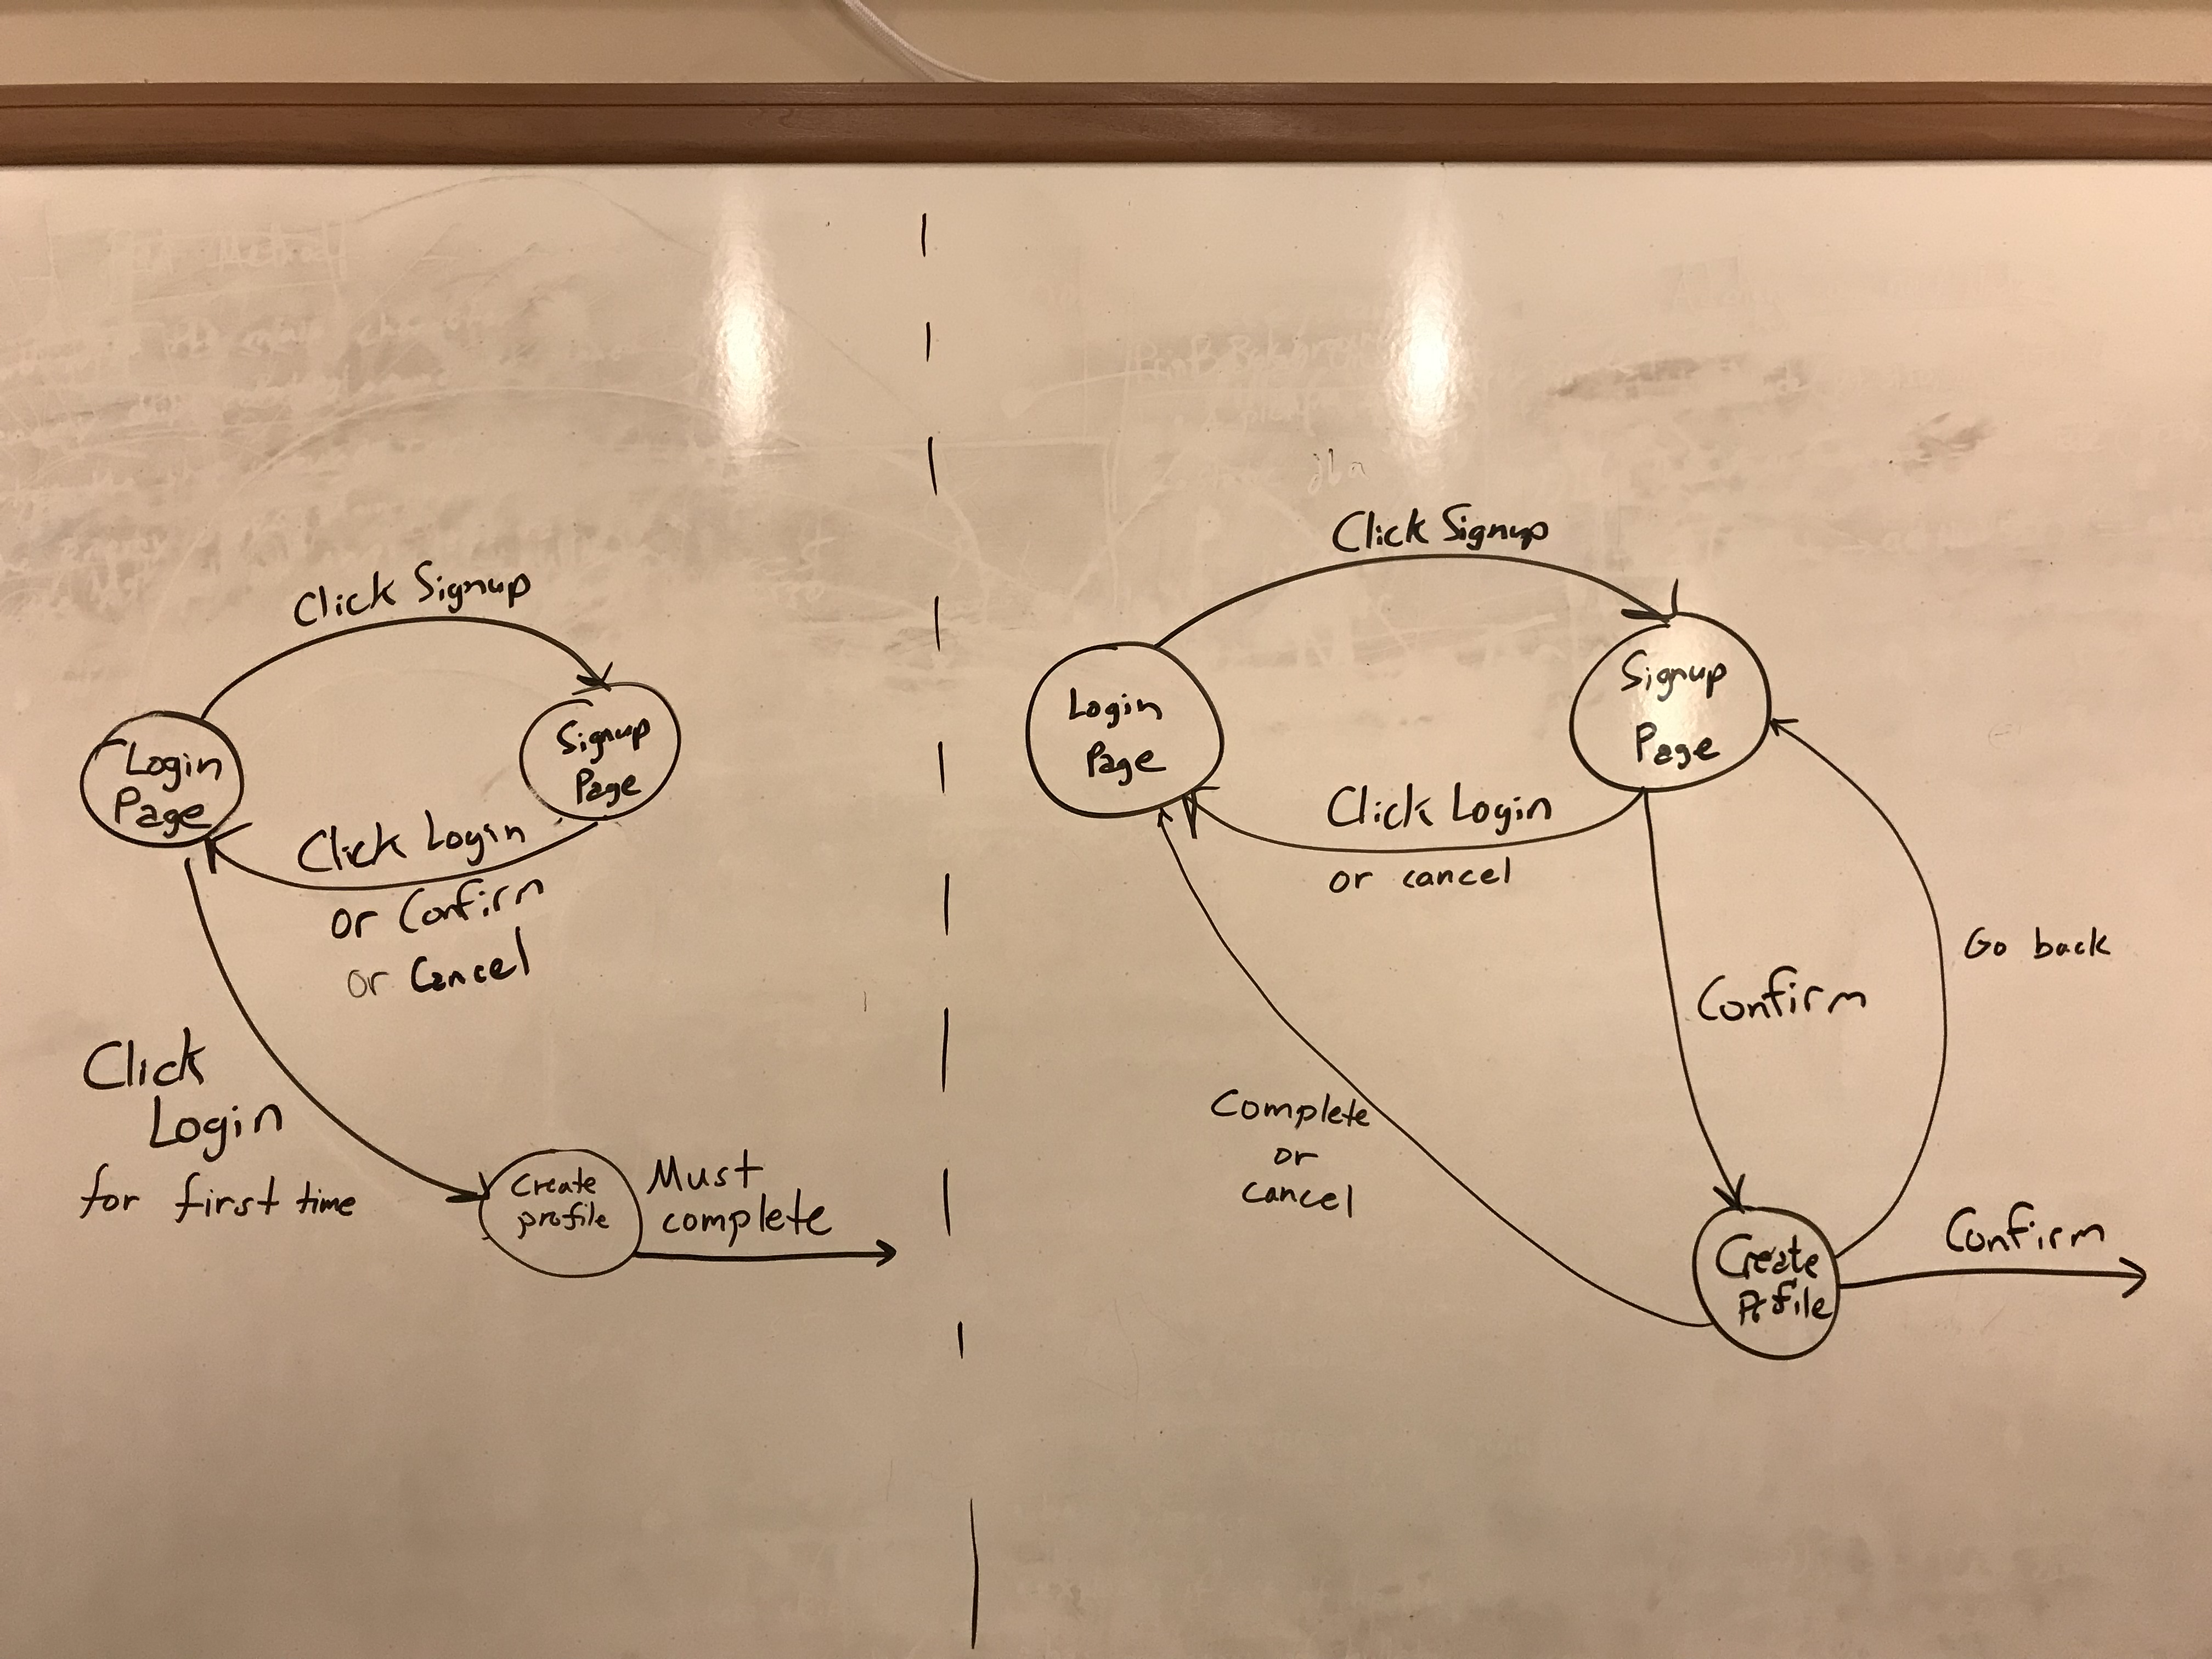 Click Signup
Login
Page
Signup
Page
Click Login
or Confirm
or Cancel
Click
Login
for first time
Create
profile
Must
complete
Click Signup
Login
Page
Signup
Page
Click Login
or cancel
Confirm
Go back
Complete
or
cancel
Create
Profile
Confirm